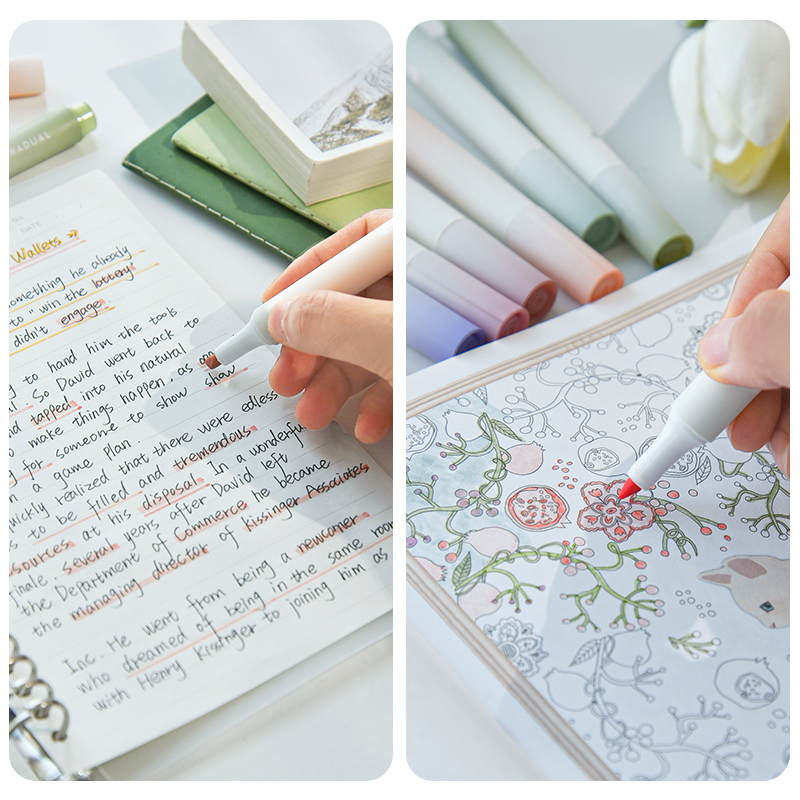 GRADUAL
No
DATE
Wallets
something he already
to "win the lottery"
didn't engage.
g to hand him the tools
So David went back to
nd tapped into his natural
o make things happen. as opp
for someone to show show
a game plan.
quickly realized that there were edless
s to be filled and tremendous
sources at his disposal. In a wonderfu
finale, several years after David left
the Department of Commerce he became
the managing director of Kissinger Associates
Inc. He went from being a newcomer
who dreamed of being in the same room
with Henry Kissinger to joining him as